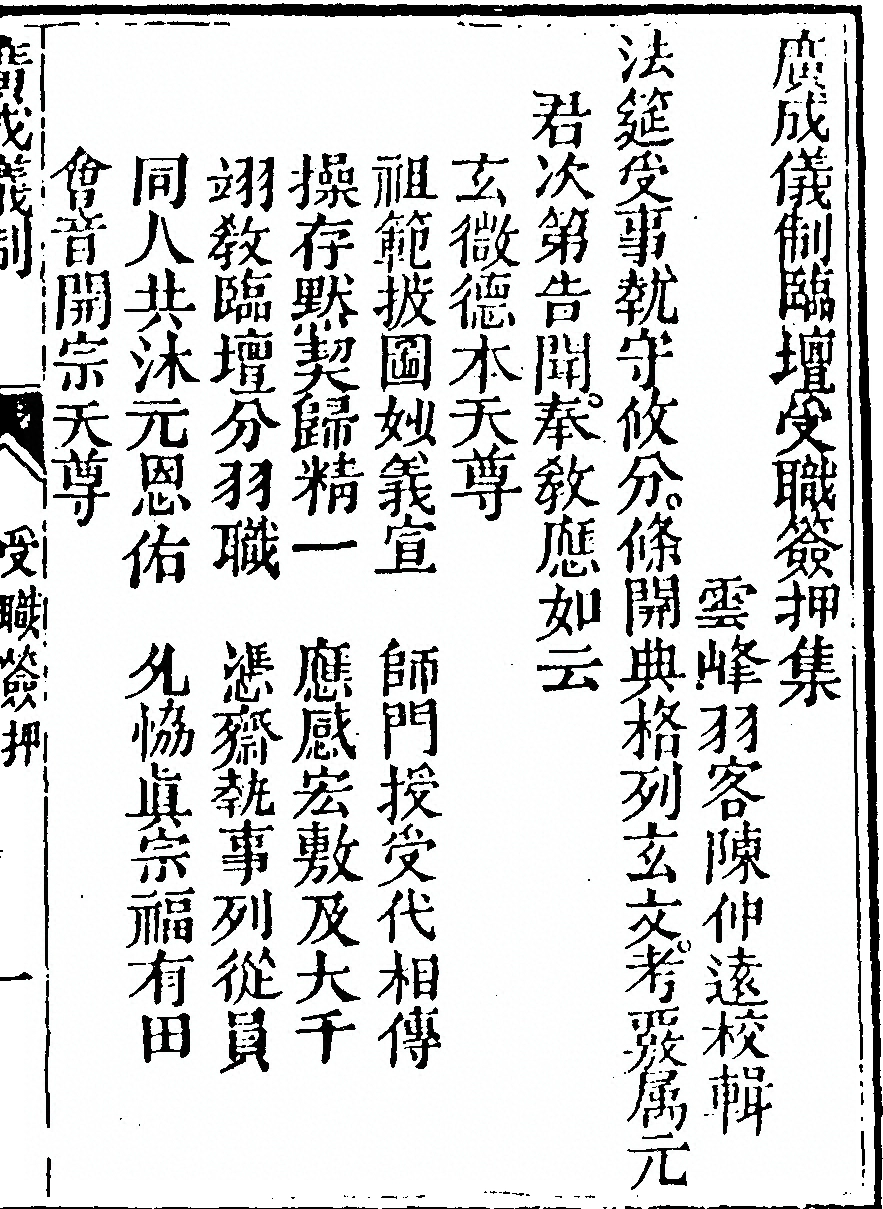 廣成儀制臨壇受職簽押集
雲峰羽客陳仲遠校輯
法筵受事執守攸分。條開典格列玄文。考覈属元
君次第告聞。奉教應如云
玄微德本天尊
祖範披圖妙義宣　師門授受代相傳
操存默契歸精一　應感宏敷及大千
翊教臨壇分羽職　憑齋執事列從員
同人共沐元恩佑　允恊眞宗福有田
會音開宗天尊
廣成儀制　受職簽押　一